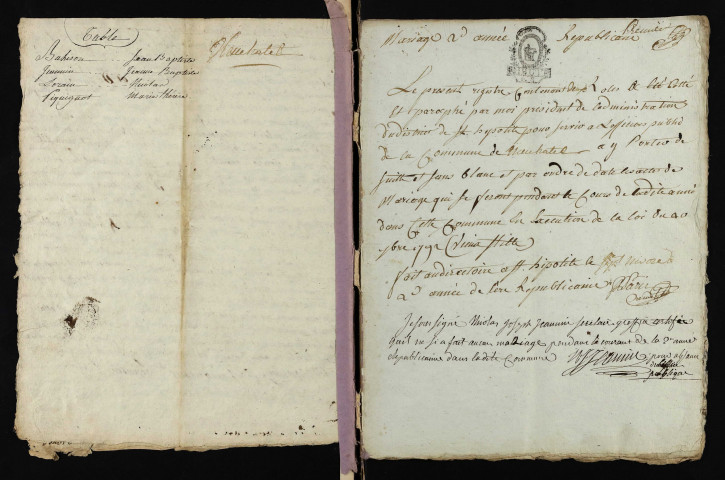 Table
Babeson Jean Baptiste
Jeannin Jeanne Baptiste
Lorain Nicolas
Piquignot Marie
Neuchatel
Mariage 2e année Republicaine
Premier
Le present registre contenant deux Roles a été Cotté
Et paraphé par moi president de l'administration
du district de St hipolite pour servir a L'officier public
de la Commune de Neuchatel a y Porter de
Suitte et sans blanc et par ordre de date les actes de
Mariage qui se feront pendant le Cours de ladite année
dans Cette Commune En Execution de la loi du 20
7bre 1792 Vieux Stille
fait au directoire a St hipolite le
2e année de l'ere Republicaine
Je soussigné Nicolas Joseph Jeannin secretaire greffier certifie
qu'il ne si a fait aucun mariage pendant le courant de la 2e annee
Republicaine dans ladite Commune
NJ Jeannin pour absence
de l'officier
publique